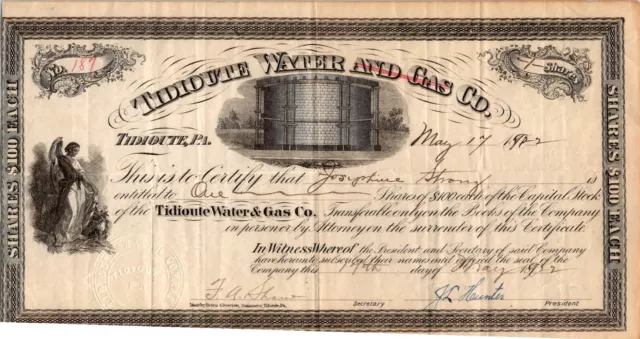 No. 189
1 Shares
TIDIOUTE WATER AND GAS CO.
TIDIOUTE, PA.
May 17 1922
This is to Certify that Josephine Strong is
entitled to One Shares of $100 each of the Capital Stock
of the Tidioute Water & Gas Co. Transferable only on the Books of the Company
in person or by Attorney on the surrender of this Certificate.
In Witness Whereof the President and Secretary of said Company
have hereunto subscribed their names and affixed the seal of the
Company this 17th day of May 1922
Secretary
J L Hunter
President
SHARES $100 EACH
SHARES $100 EACH